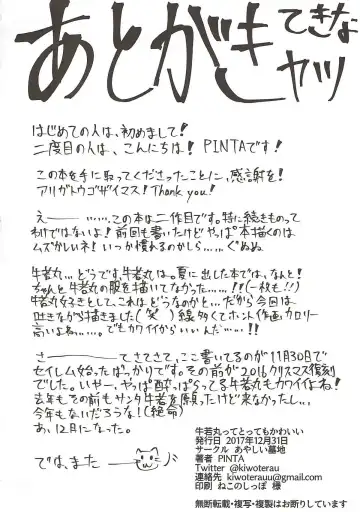 あとがきてきなヤツ
はじめての人は、初めまして!
二度目の人は、こんにちは! PINTAです!
この本を手に取ってくださったことに、感謝を!
アリガトウゴザイマス! Thank you!
えー――……この本は二作目です。特に続きものって
わけではないよ! 前回も書いたけどやっぱ本描くのは
ムズかしいネ! いつか慣れるのかしら……ぐぬぬ
牛若丸…どうです、牛若丸は。夏に出した本では、なんと!
ちゃんと牛若丸の服を描いてなかった……!!(一枚も!!)
牛若丸好きとして、これはどうなのかと…だから今回は
吐きながら描きました(笑) 線多くてホント作画カロリー
高いよね……。でもカワイイからいいんだ……!!
さーー――てさてさて、ここ書いてるのが11月30日で
セイレム始まったばっかりです。その前が2016クリスマス復刻
でした。いやー、やっぱ酔っぱらってる牛若丸もカワイイよね!
去年もその前もサンタ牛若を願ったけど来なかったし…
今年もないだろうな!(絶命)
あ、12月になった。
では、また
牛若丸ってとってもかわいい
発行日 2017年12月31日
サークル あやしい墓地
著者 PINTA
Twitter @kiwoterau
連絡先 kiwoterauu@gmail.com
印刷 ねこのしっぽ 様
無断転載・複写・複製はお断りしています